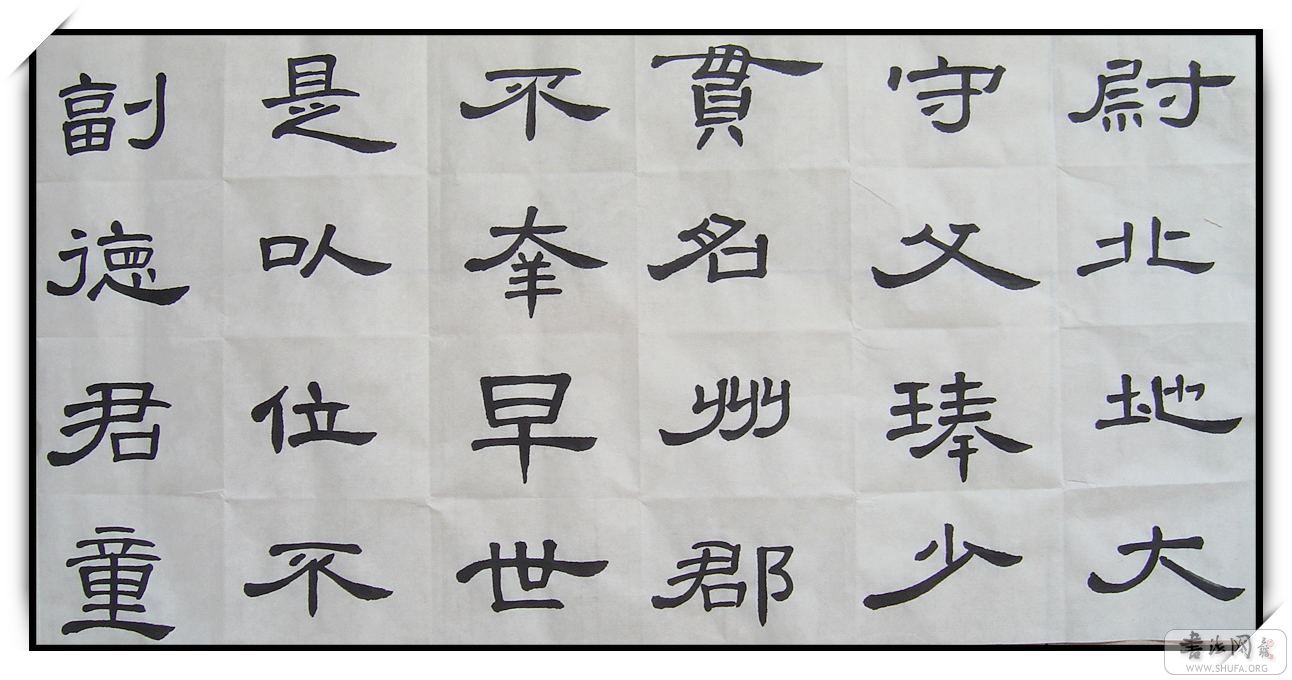 尉北地大
守父琫少
貫名州郡
不幸早世
是以位不
副德君童
書法网
WWW.SHUFA.ORG